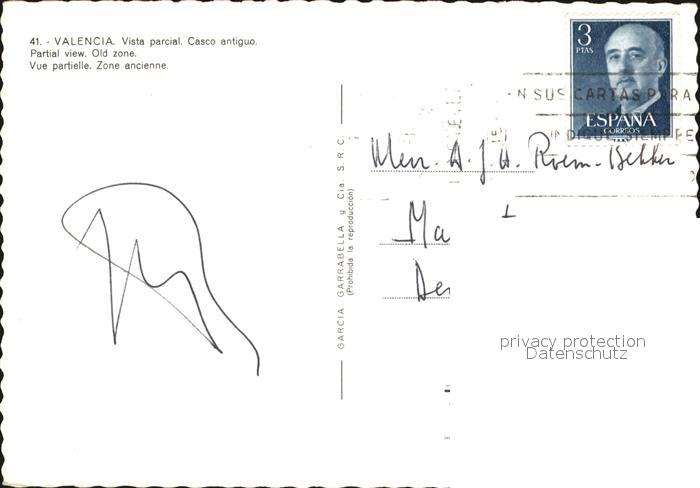 41. - VALENCIA. Vista parcial. Casco antiguo.
Partial view. Old zone.
Vue partielle. Zone ancienne.
3
PTAS
ESPAÑA
CORREOS
N SUS CARTAS PARA
INDIQUE SIEMPRE
GARCIA GARRABELLA y Cia. S.R.C.
(Prohibida la reproducción)
A. J. H.
Ma
privacy protection
Datenschutz